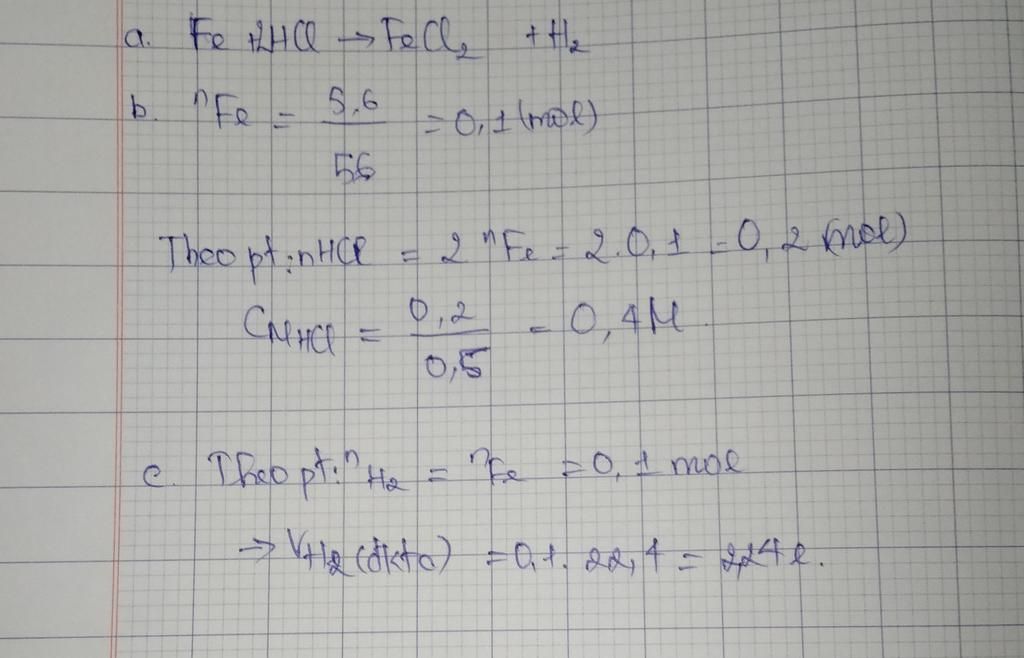 a. Fe + 2HCl → FeCl₂ + H₂
b. nFe = 5,6 / 56 = 0,1 (mol)
Theo pt: nHCl = 2 nFe = 2.0,1 = 0,2 (mol)
CMHCl = 0,2 / 0,5 = 0,4M
c. Theo pt: nH₂ = nFe = 0,1 mol
→ VH₂ (đktc) = 0,1. 22,4 = 2,24 l.